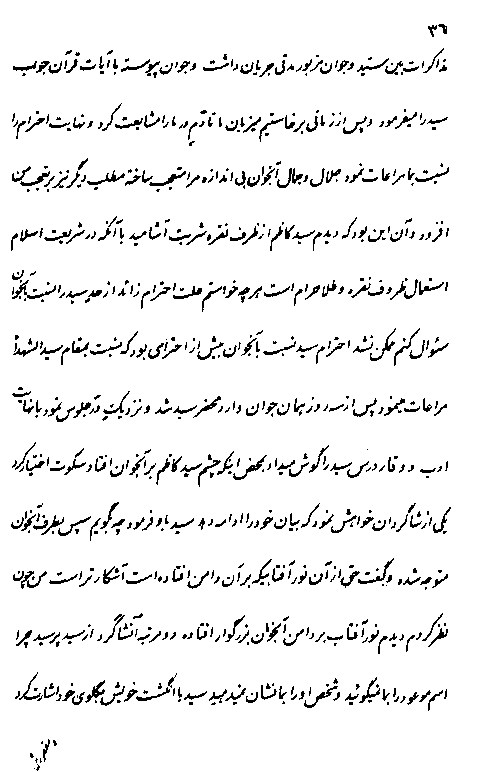 ۳۶
مذاکرات بین سید و جوان مزبور مدتی جریان داشت و جوان پیوسته با آیات قرآن جواب
سید را میفرمود و پس از زمانی برخاستیم میزبان ما تا دم در ما را مشایعت کرد و نهایت احترام را
نسبت بما مراعات نمود جلال و جمال آنجوان بی اندازه مرا متعجب ساخته مطلب دیگر نیز بر تعجب من
افزود و آن این بود که دیدم سید کاظم از ظرف نقره شربت آشامید با آنکه در شریعت اسلام
استعمال ظروف نقره و طلا حرام است هر چه خواستم علت احترام زائد از حد سید را نسبت بآنجوان
سئوال کنم ممکن نشد احترام سید نسبت بآنجوان بیش از احترامی بود که نسبت بمقام سید الشهدا
مراعات مینمود پس از سه روز همان جوان وارد محضر سید شد و نزدیک در جلوس نمود با نهایت
ادب و وقار درس سید را گوش میداد بمحض اینکه چشم سید کاظم بر آنجوان افتاد سکوت اختیار کرد
یکی از شاگردان خواهش نمود که بیان خود را ادامه دهد سید باو فرمود چه بگویم سپس بطرف آنجوان
متوجه شده و گفت حق از آن نور آفتابیکه بر آن دامن افتاده است آشکارتر است من چون
نظر کردم دیدم نور آفتاب بر دامن آنجوان بزرگوار افتاده دو مرتبه آنشاگرد از سید پرسید چرا
اسم موعود را بما نمیگوئید و شخص او را بما نشان نمیدهید سید با انگشت خویش بگلوی خود اشارت کرد